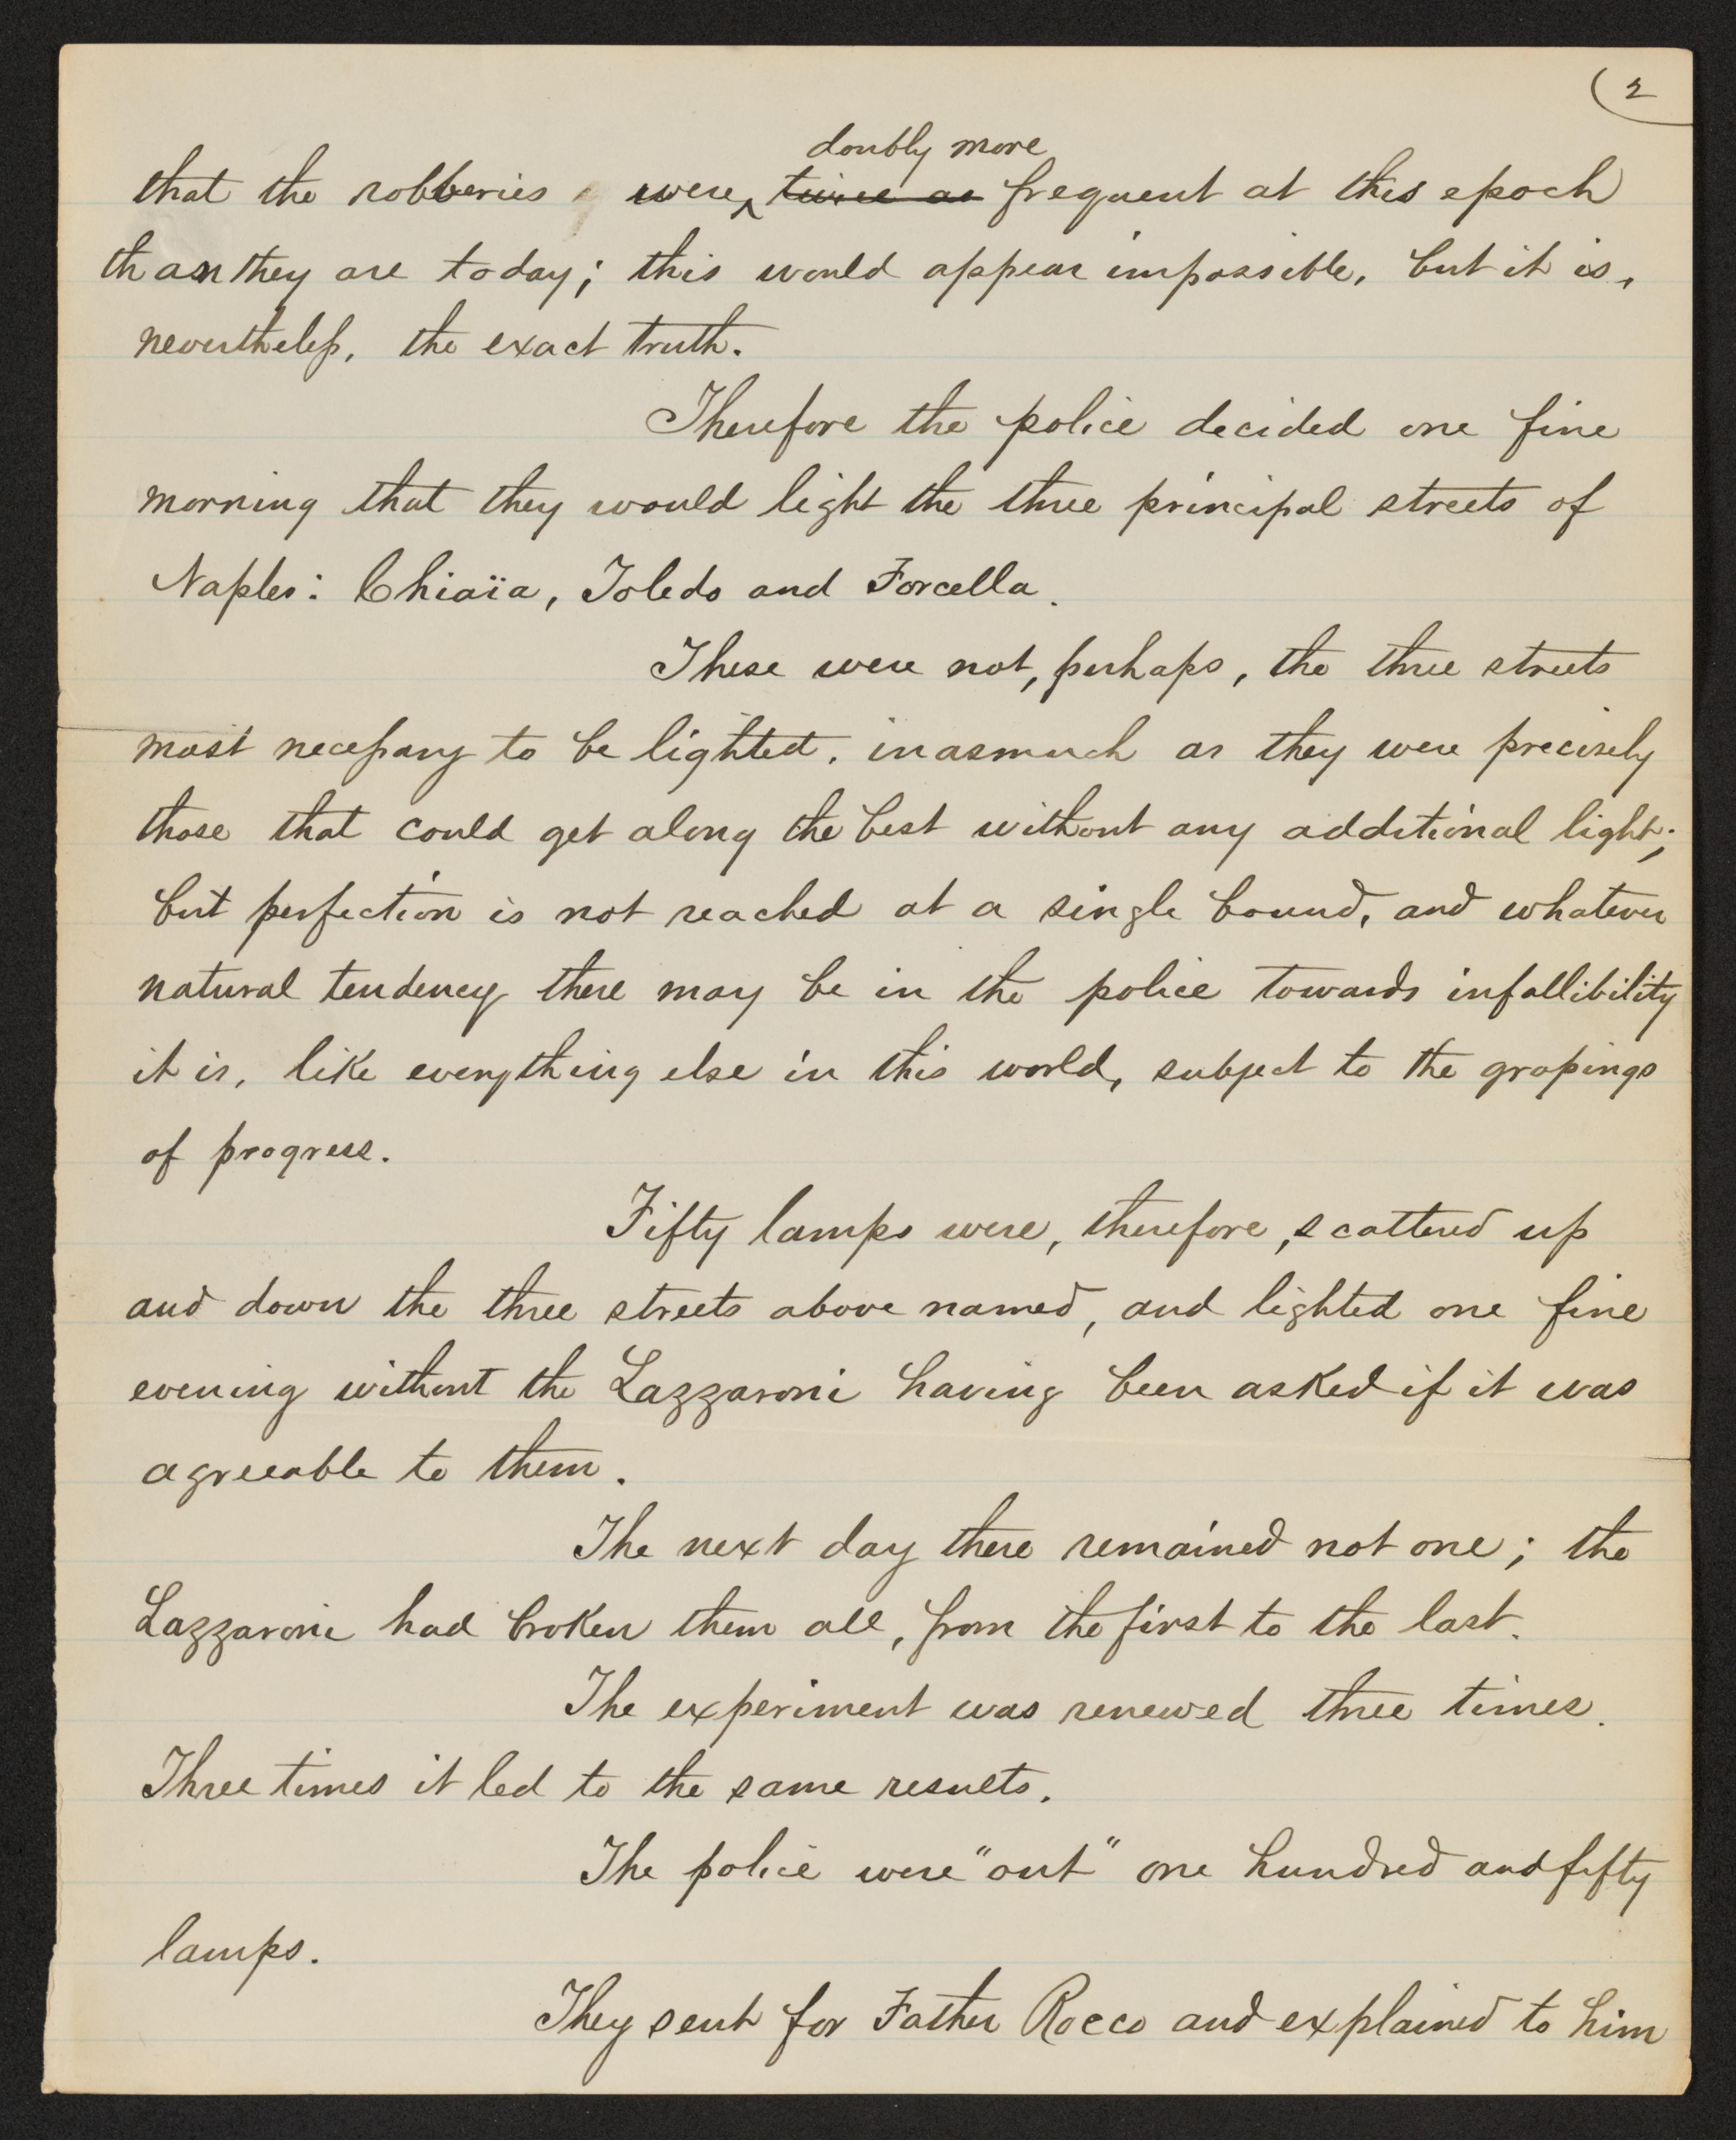 (2
doubly more
that the robberies were ^ twice as frequent at this epoch
than they are today; this would appear impossible, but it is,
nevertheless, the exact truth.
Therefore the police decided one fine
morning that they would light the three principal streets of
Naples: Chiaïa, Toledo and Forcella.
These were not, perhaps, the three streets
most necessary to be lighted, inasmuch as they were precisely
those that could get along the best without any additional light;
but perfection is not reached at a single bound, and whatever
natural tendency there may be in the police towards infallibility
it is, like everything else in this world, subject to the gropings
of progress.
Fifty lamps were, therefore, scattered up
and down the three streets above named, and lighted one fine
evening without the Lazzaroni having been asked if it was
agreeable to them.
The next day there remained not one; the
Lazzaroni had broken them all, from the first to the last.
The experiment was renewed three times.
Three times it led to the same results.
The police were "out" one hundred and fifty
lamps.
They sent for Father Rocco and explained to him